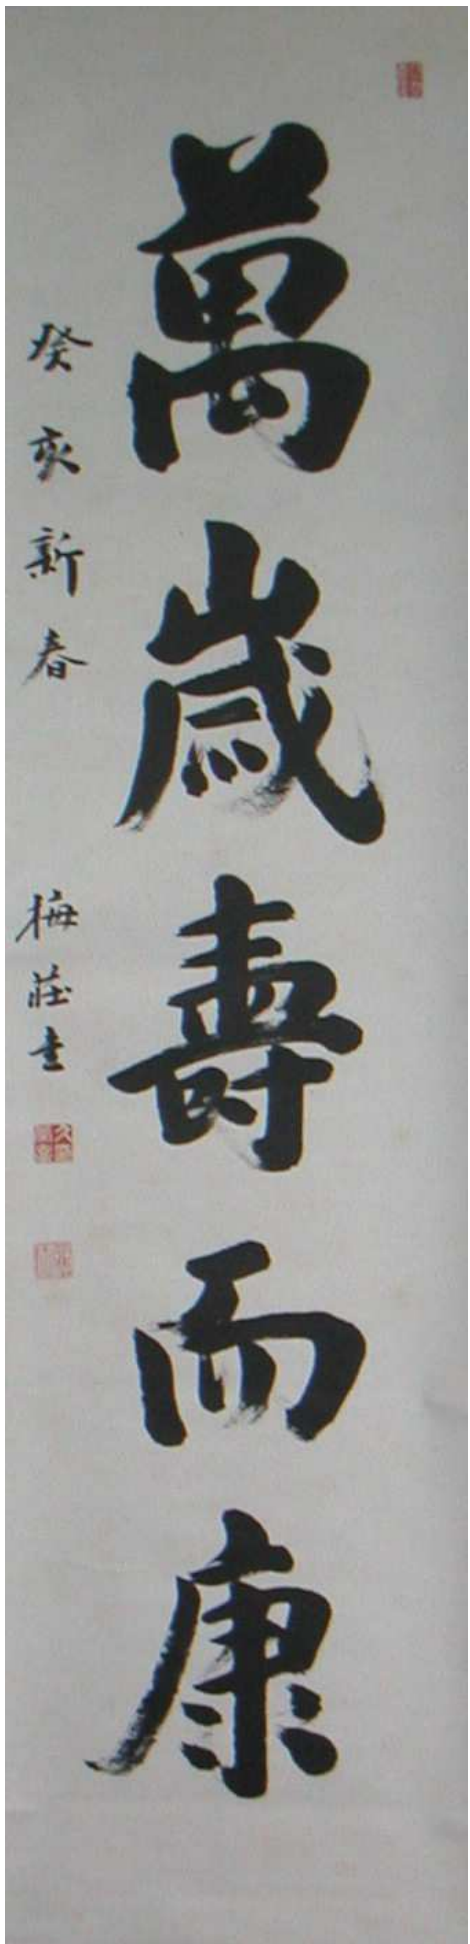 萬歲壽而康
癸亥新春 梅莊書